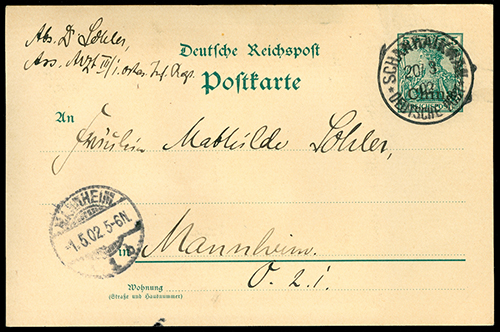 Abs. Dr Sohler,
Ass. Arzt III/1. ostas. Inf. Regt.
Deutsche Reichspost
Postkarte
SCHANHAIKWAN
20/3
02
* DEUTSCHE POST *
China
An
Fräulein Mathilde Sohler,
MANNHEIM
1.5.02 5-6N.
1
in Mannheim.
O. 2. 1.
Wohnung
(Straße und Hausnummer)